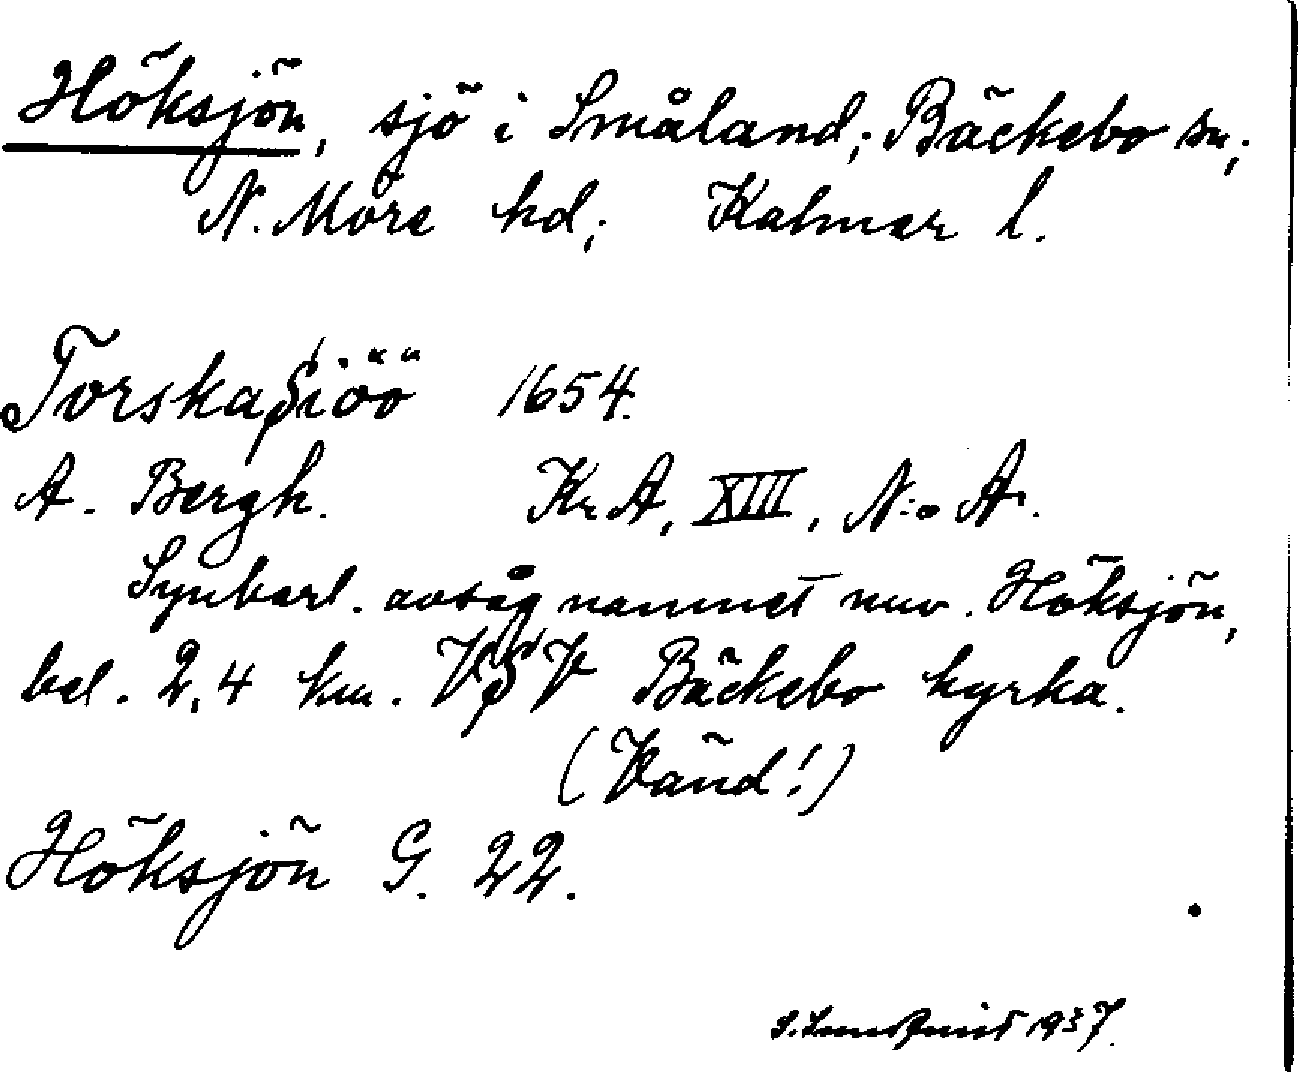 Höksjön, sjö i Småland; Bäckebo sn;
N. Möre hd; Kalmar l.
Torskaßiöö 1654.
A. Bergh. Kr A, XIII, N:o A.
Synbarl. avsåg namnet nuv. Höksjön,
bel. 2,4 km. VSV Bäckebo kyrka.
(Vänd!)
Höksjön G. 22.
1937.